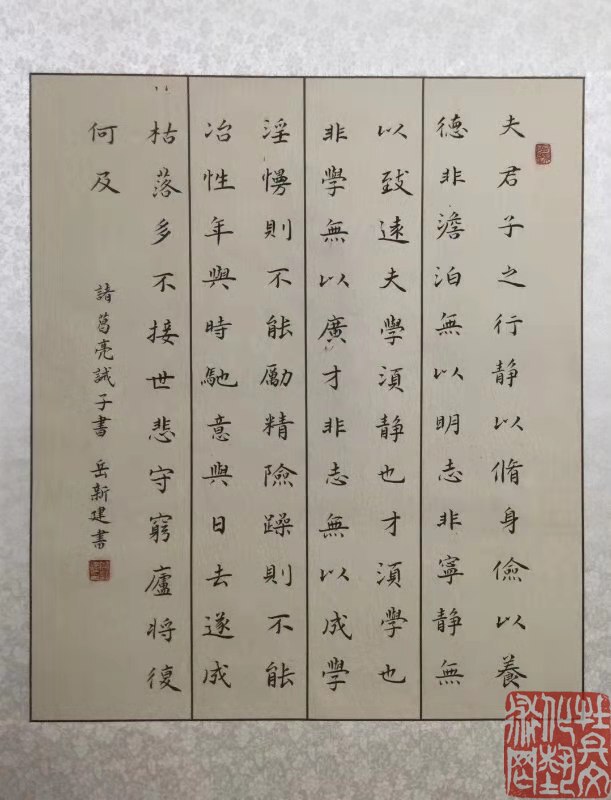 夫君子之行静以脩身儉以養
德非澹泊無以明志非寧静無
以致遠夫學須静也才須學也
非學無以廣才非志無以成學
淫慢則不能勵精險躁則不能
冶性年與時馳意與日去遂成
枯落多不接世悲守窮廬将復
何及
諸葛亮誡子書 岳新建書